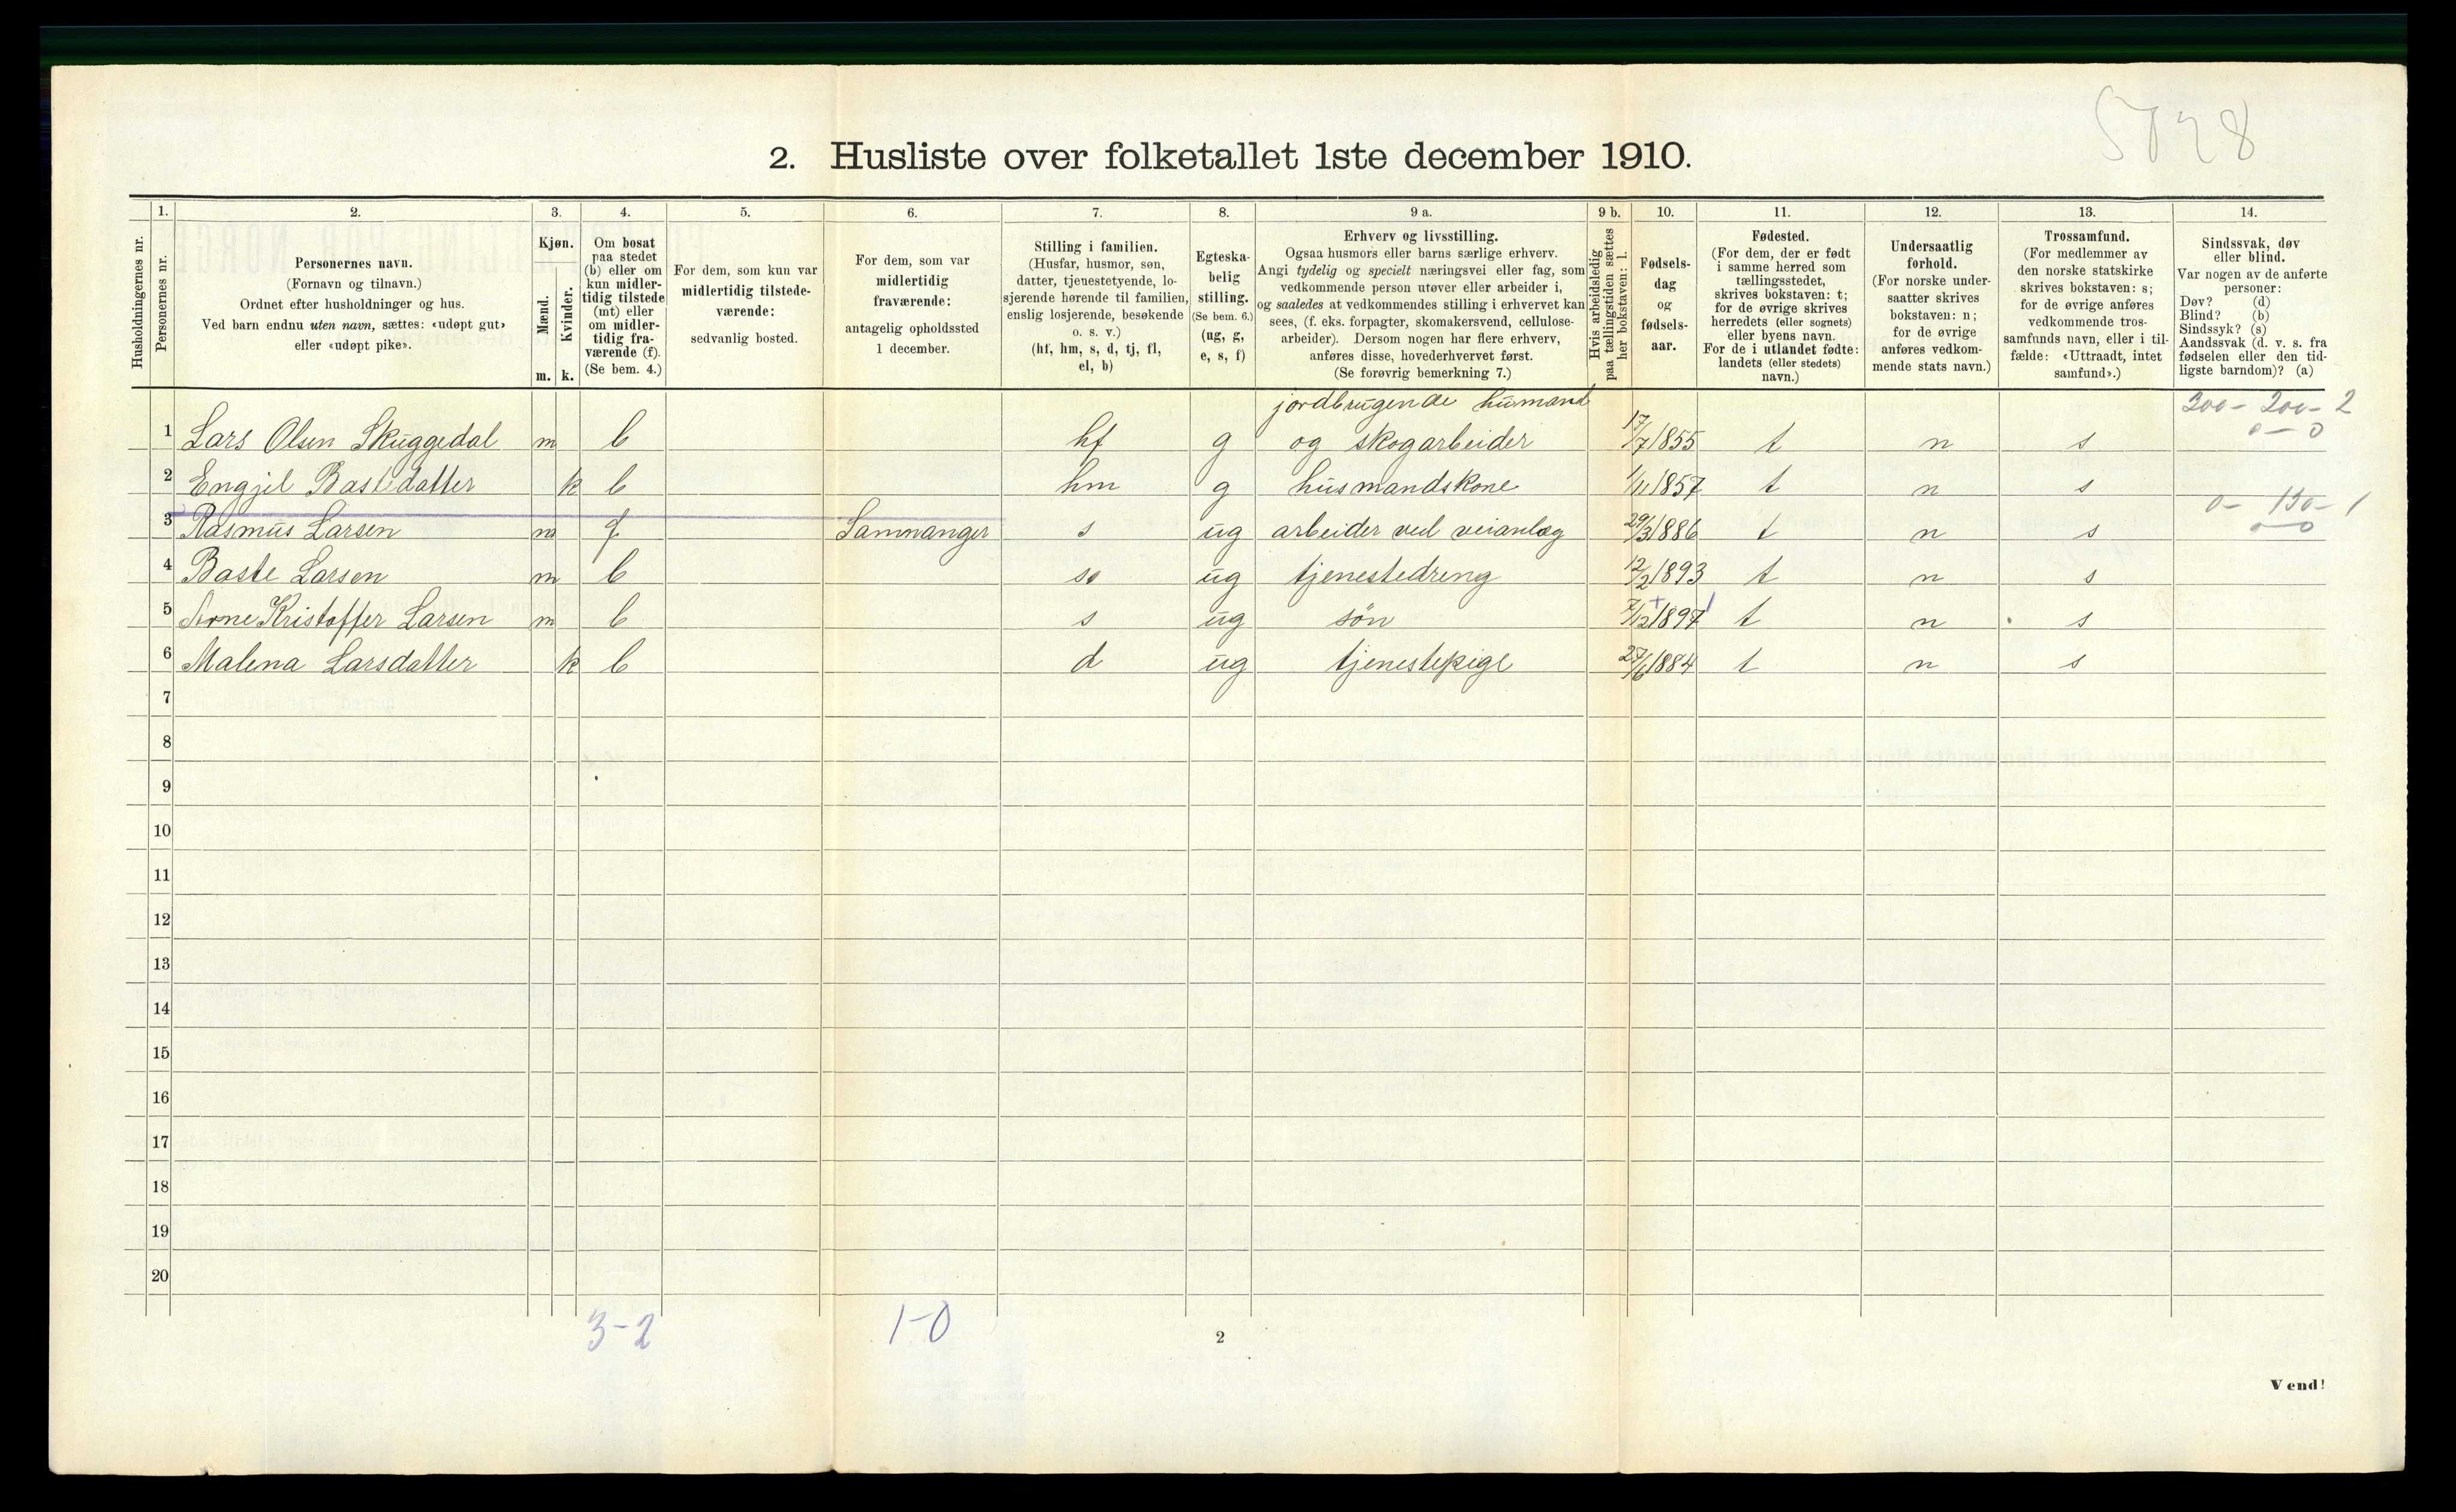 5028
2. Husliste over folketallet 1ste december 1910.
Husholdningernes nr.
1.
Personernes nr.
2.
Personernes navn.
(Fornavn og tilnavn.)
Ordnet efter husholdninger og hus.
Ved barn endnu uten navn, sættes: «udøpt gut»
eller «udøpt pike».
3.
Kjøn.
Mænd.
m.
Kvinder.
k.
4.
Om bosat
paa stedet
(b) eller om
kun midler-
tidig tilstede
(mt) eller
om midler-
tidig fra-
værende (f).
(Se bem. 4.)
5.
For dem, som kun var
midlertidig tilstede-
værende:
sedvanlig bosted.
6.
For dem, som var
midlertidig
fraværende:
antagelig opholdssted
1 december.
7.
Stilling i familien.
(Husfar, husmor, søn,
datter, tjenestetyende, lo-
sjerende hørende til familien,
enslig losjerende, besøkende
o. s. v.)
(hf, hm, s, d, tj, fl,
el, b)
8.
Egteska-
belig
stilling.
(Se bem. 6.)
(ug, g,
e, s, f)
9 a.
Erhverv og livsstilling.
Ogsaa husmors eller barns særlige erhverv.
Angi tydelig og specielt næringsvei eller fag, som
vedkommende person utøver eller arbeider i,
og saaledes at vedkommendes stilling i erhvervet kan
sees, (f. eks. forpagter, skomakersvend, cellulose-
arbeider). Dersom nogen har flere erhverv,
anføres disse, hovederhvervet først.
(Se forøvrig bemerkning 7.)
9 b.
Hvis arbeidsledig
paa tællingstiden sættes
her bokstaven: l.
10.
Fødsels-
dag
og
fødsels-
aar.
11.
Fødested.
(For dem, der er født
i samme herred som
tællingsstedet,
skrives bokstaven: t;
for de øvrige skrives
herredets (eller sognets)
eller byens navn.
For de i utlandet fødte:
landets (eller stedets)
navn.)
12.
Undersaatlig
forhold.
(For norske under-
saatter skrives
bokstaven: n;
for de øvrige
anføres vedkom-
mende stats navn.)
13.
Trossamfund.
(For medlemmer av
den norske statskirke
skrives bokstaven: s;
for de øvrige anføres
vedkommende tros-
samfunds navn, eller i til-
fælde: «Uttraadt, intet
samfund».)
14.
Sindssvak, døv
eller blind.
Var nogen av de anførte
personer:
Døv? (d)
Blind? (b)
Sindssyk? (s)
Aandssvak (d. v. s. fra
fødselen eller den tid-
ligste barndom)? (a)
jordbrugende husmand 300- 200- 2
1 Lars Olsen Skuggedal m b hf g og skogarbeider 17/7 1855 t n s 0-0
2 Engjel Bastedatter k b hm g husmandskone 1/11 1857 t n s
0- 150- 1
3 Rasmus Larsen m f Samnanger s ug arbeider ved veianlæg 29/3 1886 t n s 0-0
4 Baste Larsen m b s ug tjenestedreng 12/2 1893 t n s
5 Arne Kristoffer Larsen m b s ug søn 7/12 1897 t n s
6 Malena Larsdatter k b d ug tjenestepige 27/6 1884 t n s
7
8
9
10
11
12
13
14
15
16
17
18
19
20
3-2 1-0
2
Vend!